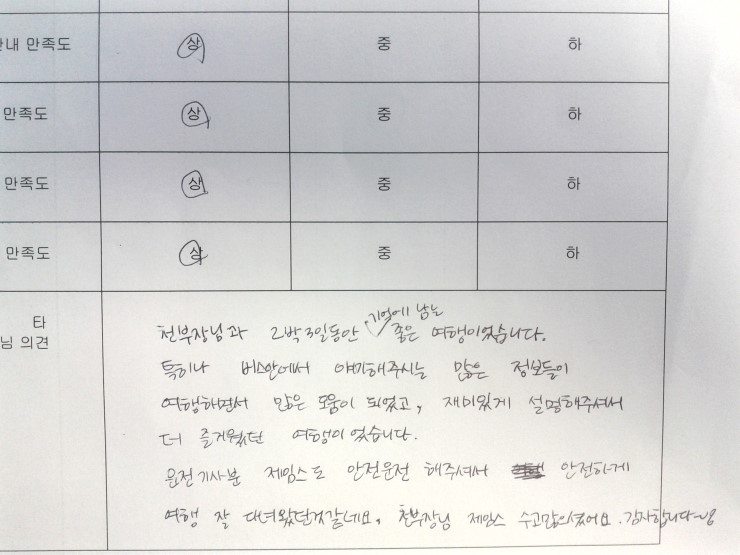 안내 만족도 상 중 하
만족도 상 중 하
만족도 상 중 하
만족도 상 중 하
타
님 의견
기억에 남는
천부장님과 2박3일동안 좋은 여행이었습니다.
특히나 버스안에서 얘기해주시는 많은 정보들이
여행하면서 많은 도움이 되었고, 재미있게 설명해주셔서
더 즐거웠던 여행이었습니다.
운전기사분 제임스도 안전운전 해주셔서 안전하게
여행 잘 다녀왔던것같네요, 천부장님 제임스 수고많으셨어요. 감사합니다~